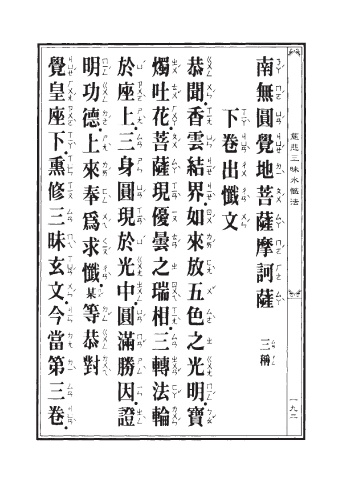 南無圓覺地菩薩摩訶薩 三稱
下卷出懺文
恭聞。香雲結界。如來放五色之光明。寶
燭吐花。菩薩現優曇之瑞相。三轉法輪
於座上。三身圓現於光中。圓滿勝因。證
明功德。上來奉為求懺。某等恭對
覺皇座下。熏修三昧玄文。今當第三卷。
慈悲三昧水懺法
一九二